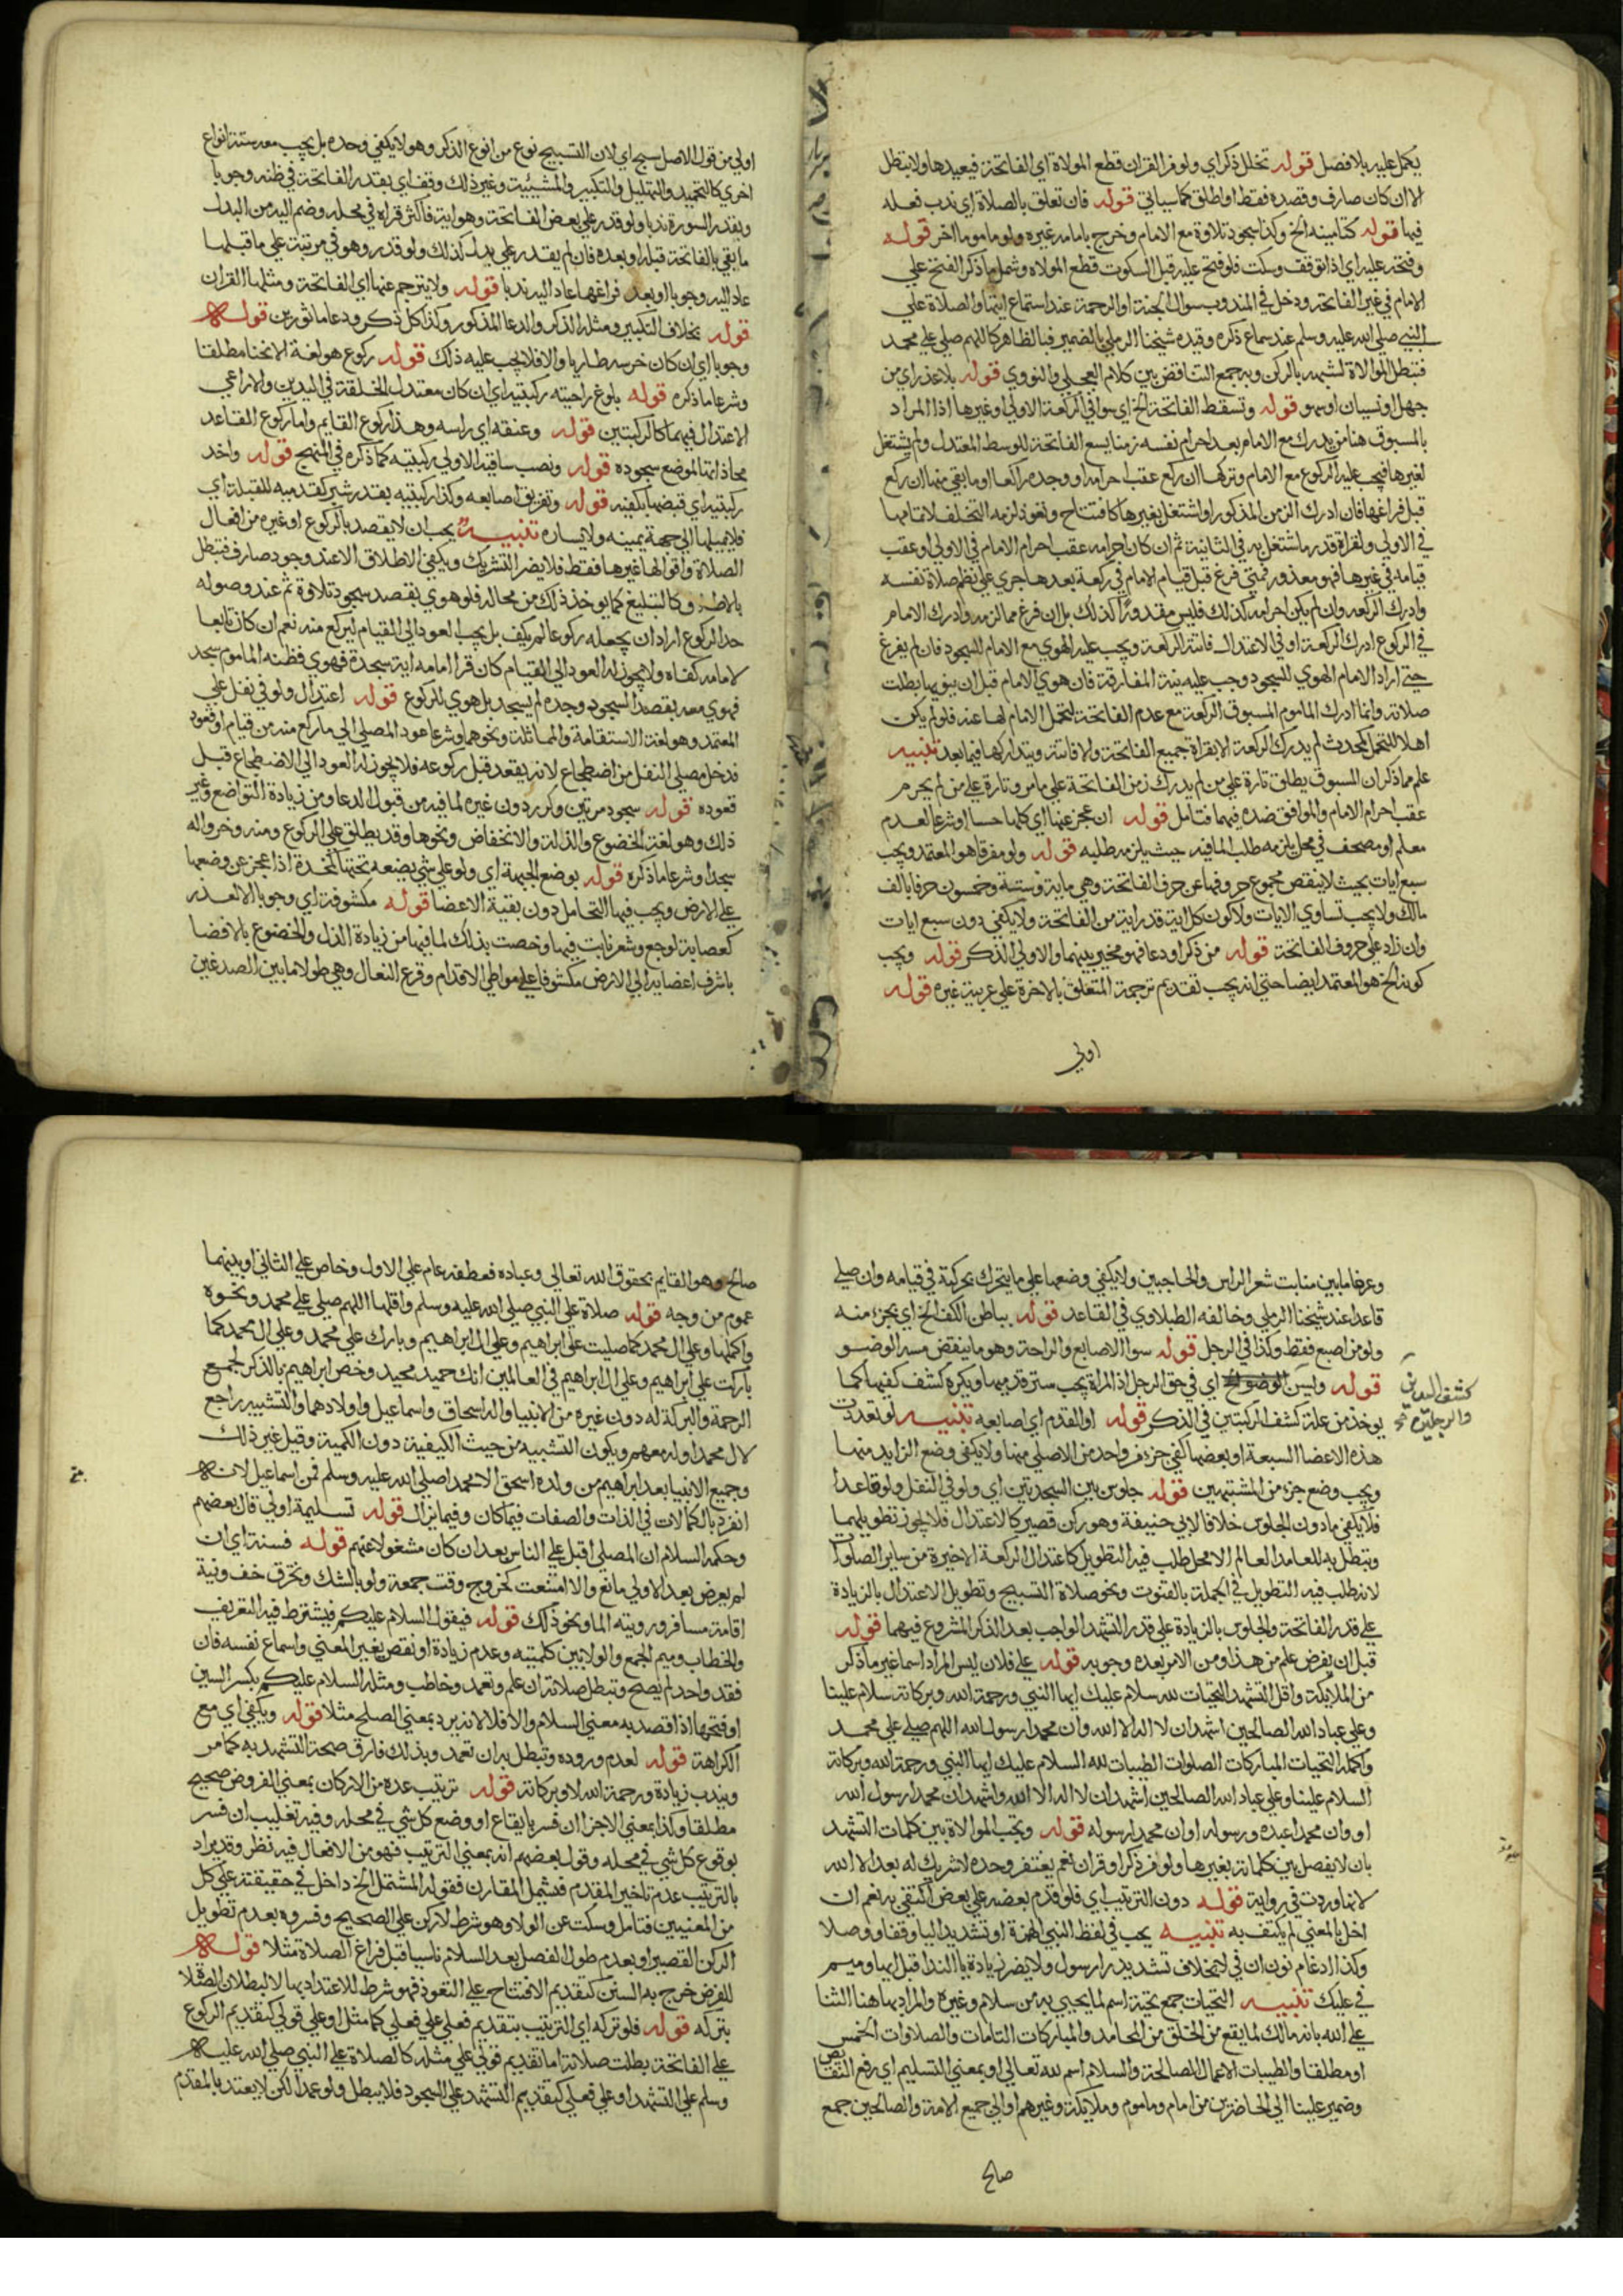 يكمل عليه بلا فصل قوله تخلل ذكر اي ولو من القران قطع الموالاة اي الفاتحة فيعيدها ولا تبطل
الا ان كان صارف وقصده فقط او اطلق كما سياتي قوله فان تعلق بالصلاة اي ندب فعله
فيها قوله كتامينه الخ وكذا سجود تلاوة مع الامام وخرج بامامه غيره ولو ماموما اخر قوله
وفتحه عليه اي اذا توقف وسكت فلو فتح عليه قبل السكوت قطع الموالاه وشمل ما ذكر الفتح علي
الامام في غير الفاتحة ودخل في المندوب سوال الجنة او الرحمة عند استماع ايتها والصلاة علي
النبي صلي الله عليه وسلم عند سماع ذكره وقيده شيخنا الرملي بالضمير فبالظاهر كاللهم صلي علي محمد
فتبطل الموالاة لشبهه بالركن وبه جمع التناقض بين كلام العجلي والنووي قوله بلا عذر اي من
جهل او نسيان او سهو قوله وتسقط الفاتحة الخ اي سوا في الركعة الاولي او غيرها اذا المراد
بالمسبوق هنا من يدرك مع الامام بعد احرام نفسه زمنا يسع الفاتحة للوسط المعتدل ولم يشتغل
لغيرها فيجب عليه الركوع مع الامام وتركها ان ركع عقب احرامه او وجده راكعا او ما بقي منها ان ركع
قبل فراغها فان ادرك الزمن المذكور او اشتغل بغيرها كافتتاح وتعوذ لزمه التخلف لاتمامها
في الاولي ولقراة قدر ما اشتغل به في الثانية ثم ان كان احرامه عقب احرام الامام في الاولي او عقب
قيامه في غيرها فهو معذور فمتي فرغ قبل قيام الامام في ركعة بعدها جري علي نظم صلاة نفسه
وادرك الركعه وان لم يكن احرامه كذلك فليس معذورا كذلك بل ان فرغ مما لزمه وادرك الامام
في الركوع ادرك الركعة او في الاعتدال فاتته الركعة ويجب عليه الهوي مع الامام للسجود فان لم يفرغ
حتي اراد الامام الهوي للسجود وجب عليه نية المفارقة فان هوي الامام قبل ان ينويها بطلت
صلاته وانما ادرك الماموم المسبوق الركعة مع عدم الفاتحة لتحمل الامام لها عنه فلو لم يكن
اهلا للتحمل كمحدث لم يدرك الركعة الا بقراة جميع الفاتحة والا فاتته ويتداركها فيما بعد تنبيه
علم مما ذكر ان المسبوق يطلق تارة علي من لم يدرك زمن الفاتحة علي ما مر وتارة علي من لم يحرم
عقب احرام الامام والموافق ضده فيهما فتامل قوله ان عجز عنها اي كلها حسا او شرعا لعدم
معلم او مصحف في محل يلزمه طلب الما فيه حيث يلزمه طلبه قوله ولو مفرقا هو المعتمد ويجب
سبع ايات بحيث لا ينقص مجموع حروفها عن حرف الفاتحة وهي ماية وستة وخمسون حرفا بالف
مالك ولا يجب تساوي الايات ولا كون كل اية قدر اية من الفاتحة ولا يكفي دون سبع ايات
وان زاد علي حروف الفاتحة قوله من ذكر او دعا فهو مخير بينهما والاولي الذكر قوله ويجب
كونه الخ هو المعتمد ايضا حتي انه يجب تقديم ترجمة المتعلق بالاخرة علي عربية غيره قوله
اولي
اولي من قول الاصل سبح اي لان التسبيح نوع من انوع الذكر وهو لا يكفي وحده بل يجب معه ستة انواع
اخري كالتحميد والتهليل والتكبير والمشيئية وغير ذلك وقف اي بقدر الفاتحة في ظنه وجوبا
وبقدر السورة ندبا ولو قدر علي بعض الفاتحة وهو اية فاكثر قراه في محله وضم اليه من البدل
ما بقي بالفاتحة قبله او بعده فان لم يقدر علي بدل كذلك ولو قدر وهو في مرتبة علي ما قبلها
عاد اليه وجوبا او بعد فراغها عاد اليه ندبا قوله ولا يترجم عنها اي الفاتحة ومثلها القران
قوله بخلاف التكبير ومثله الذكر والدعا المذكور وكذا كل ذكر ودعا ماثورين قوله
وجوبا اي ان كان خرسه طاريا والا فلا يجب عليه ذلك قوله ركوع هو لغة الانحنا مطلقا
وشرعا ما ذكره قوله بلوغ راحيته ركبتيه اي ان كان معتدل الخلقة في اليدين والا راعي
الاعتدال فيهما كالركبتين قوله وعنقه اي راسه وهذا ركوع القايم واما ركوع القاعد
محاذاتها لموضع سجوده قوله ونصب ساقيه الاولي ركبتيه كما ذكره في المنهج قوله واخذ
ركبتيه اي قبضهما بكفيه قوله وتفريق اصابعه وكذا ركبتيه بقدر شبر كقدميه للقبلة اي
فلا يميلها الي جهة يمينه ولا يساره تنبيه يجب ان لا يقصد بالركوع او غيره من افعال
الصلاة واقوالها غيرها فقط فلا يضر التشريك ويكفي الاطلاق الا عند وجود صارف فتبطل
بالاط وكالتبليغ كما يوخذ ذلك من محاله فلو هوي بقصد سجود تلاوة ثم عند وصوله
حد الركوع اراد ان يجعله ركوعا لم يكف بل يجب العود الي القيام ليركع منه نعم ان كان تابعا
لامامه كفاه ولا يجوز له العود الي القيام كان قرا امامه اية سجدة فهوي فظنه الماموم سجد
فهوي معه بقصد السجود وجده لم يسجد بل هوي للركوع قوله اعتدال ولو في نفل علي
المعتمد وهو لغة الاستقامة والمماثلة ونحوهما وشرعا عود المصلي الي ما ركع منه من قيام او قعود
فدخل مصلي النفل من اضطجاع لانه يقعد قبل ركوعه فلا يجوز له العود الي الاضطجاع قبل
قعوده قوله سجود مرتين وكرر دون غيره لما فيه من قبول الدعا ومن زيادة التواضع وغير
ذلك وهو لغة الخضوع والذلة والانخفاض ونحوها وقد يطلق علي الركوع ومنه وخروا له
سجدا وشرعا ما ذكره قوله بوضع الجبهة اي ولو علي شي يضعه تحتها كمخدة اذا عجز عن وضعها
علي الارض ويجب فيها التحامل دون بقية الاعضا قوله مكشوفة اي وجوبا الا لعذر
كعصابة لوجع وشعر نابت فيها وخصت بذلك لما فيها من زيادة الذل والخضوع بالافضا
باشرف اعضايه الي الارض مكشوفا علي مواطي الاقدام وقرع النعال وهي طولا ما بين الصدغين
وعرضا ما بين منابت شعر الراس والحاجبين ولا يكفي وضعها علي ما يتحرك بحركته في قيامه وان صلي
قاعدا عند شيخنا الرملي وخالفه الطبلاوي في القاعد قوله بباطن الكف الخ اي بجزء منه
ولو من اصبع فقط وكذا في الرجل قوله سوا الاصابع والراحة وهو ما ينقض مسه الوضو
قوله وليس اي في حق الرجل اذ المراة يجب ستر قدميها ويكره كشف كفيها كما
كشف اليدين
والرجلين صح
يوخذ من علة كشف الركبتين في الذكر قوله او القدم اي اصابعه تنبيه لو تعددت
هذه الاعضا السبعة او بعضها كفي جزء واحد من الاصلي منها ولا يكفي وضع الزايد منها
ويجب وضع جزء من المشتبهين قوله جلوس بين السجدتين اي ولو في النفل ولو قاعدا
فلا يكفي ما دون الجلوس خلافا لابي حنيفة وهو ركن قصير كالاعتدال فلا يجوز تطويلهما
وتبطل به للعامد العالم الا محل طلب فيه التطويل كاعتدال الركعة الاخيرة من ساير الصلوات
لانه طلب فيه التطويل في الجملة بالقنوت ونحو صلاة التسبيح وتطويل الاعتدال بالزيادة
علي قدر الفاتحة والجلوس بالزيادة علي قدر التشهد الواجب بعد الذكر المشروع فيهما قوله
قبل ان يفرض علم من هذا ومن الامر بعده وجوبه قوله علي فلان ليس المراد اسما غير ما ذكر
من الملايكة واقل التشهد التحيات لله سلام عليك ايها النبي ورحمة الله وبركاته سلام علينا
وعلي عباد الله الصالحين اشهد ان لا اله الا الله وان محمدا رسول الله اللهم صلي علي محمد
واكمله التحيات المباركات الصلوات الطيبات لله السلام عليك ايها النبي ورحمة الله وبركاته
السلام علينا وعلي عباد الله الصالحين اشهد ان لا اله الا الله واشهد ان محمدا رسول الله
او وان محمدا عبده ورسوله او ان محمدا رسوله قوله وتجب الموالاة بين كلمات التشهد
بان لا يفصل بين كلماته بغيرها ولو من ذكر او قران نعم يغتفر وحده لا شريك له بعد الا الله
لانها وردت في رواية قوله دون الترتيب اي فلو قدم بعضه علي بعض اكتفي به نعم ان
اخل بالمعني لم يكتف به تنبيه يجب في لفظ النبي الهمزة او تشديد اليا وقفا ووصلا
وكذا ادغام نون ان في لا بخلاف تشديد را رسول ولا يضر زيادة يا الندا قبل ايها وميم
في عليك تنبيه التحيات جمع تحية اسم لما يحيي به من سلام وغيره والمراد بها هنا الثنا
علي الله بانه مالك لما يقع من الخلق من المحامد والمباركات التامات والصلاوات الخمس
او مطلقا والطيبات الاعمال الصالحة والسلام اسم لله تعالي او بمعني التسليم اي رفع النقائص
وضمير علينا الي الحاضرين من امام وماموم وملايكة وغيرهم او الي جميع الامة والصالحين جمع
صالح
صالح وهو القايم بحقوق الله تعالي وعباده فعطفه عام علي الاول وخاص علي الثاني او بينهما
عموم من وجه قوله صلاة علي النبي صلي الله عليه وسلم واقلها اللهم صلي علي محمد ونحوه
واكملها وعلي ال محمد كما صليت علي ابراهيم وعلي ال ابراهيم وبارك علي محمد وعلي ال محمد كما
باركت علي ابراهيم وعلي ال ابراهيم في العالمين انك حميد مجيد وخص ابراهيم بالذكر لجمع
الرحمة والبركة له دون غيره من الانبيا واله اسحاق واسماعيل واولادهما والتشبيه راجع
لال محمد او له معهم ويكون التشبيه من حيث الكيفية دون الكمية وقيل غير ذلك
وجميع الانبيا بعد ابراهيم من ولده اسحق الا محمدا صلي الله عليه وسلم فمن اسماعيل لانه
انفرد بالكمالات في الذات والصفات فيما كان وفيما يزال قوله تسليمة اولي قال بعضهم
وحكمة السلام ان المصلي اقبل علي الناس بعد ان كان مشغولا عنهم قوله فسنة اي ان
لم يعرض بعد الاولي مانع والا امتنعت كخروج وقت جمعة ولو بالشك وتخرق خف ونية
اقامة مسافر وروية الما ونحو ذلك قوله فيقول السلام عليكم فيشترط فيه التعريف
والخطاب وميم الجمع والولا بين كلمتيه وعدم زيادة او نقص بغير المعني واسماع نفسه فان
فقد واحد لم يصح وتبطل صلاته ان علم وتعمد وخاطب ومثله السلام عليكم بكسر السين
او فتحها اذا قصد به معني السلام والا فلا لانه يرد بمعني الصلح مثلا قوله ويكفي اي مع
الكراهة قوله لعدم وروده وتبطل به ان تعمد وبذلك فارق صحة التشهد به كما مر
ويندب زيادة ورحمة الله لا وبركاته قوله ترتيب عده من الاركان بمعني الفروض صحيح
مطلقا وكذا بمعني الاجزا ان فسر بايقاع او وضع كل شي في محله وفيه تغليب ان فسر
بوقوع كل شي في محله وقول بعضهم انه بمعني الترتيب فهو من الافعال فيه نظر وقد يراد
بالترتيب عدم تاخير المقدم فيشمل المقارن فقوله المشتمل الخ داخل في حقيقته علي كل
من المعنيين فتامل وسكت عن الولا وهو شرط لا ركن علي الصحيح وفسروه بعدم تطويل
الركن القصير او بعدم طول الفصل بعد السلام ناسيا قبل فراغ الصلاة مثلا قوله
للفرض خرج به السنن كتقديم الافتتاح علي التعوذ فهو شرط للاعتداد بها لا لبطلان الصلا
بتركه قوله فلو تركه اي الترتيب بتقديم فعلي علي فعلي كما مثل او علي قولي كتقديم الركوع
علي الفاتحة بطلت صلاته اما تقديم قولي علي مثله كالصلاة علي النبي صلي الله عليه
وسلم علي التشهد او علي فعلي كتقديم التشهد علي السجود فلا يبطل ولو عمدا لكن لا يعتد بالمقدم